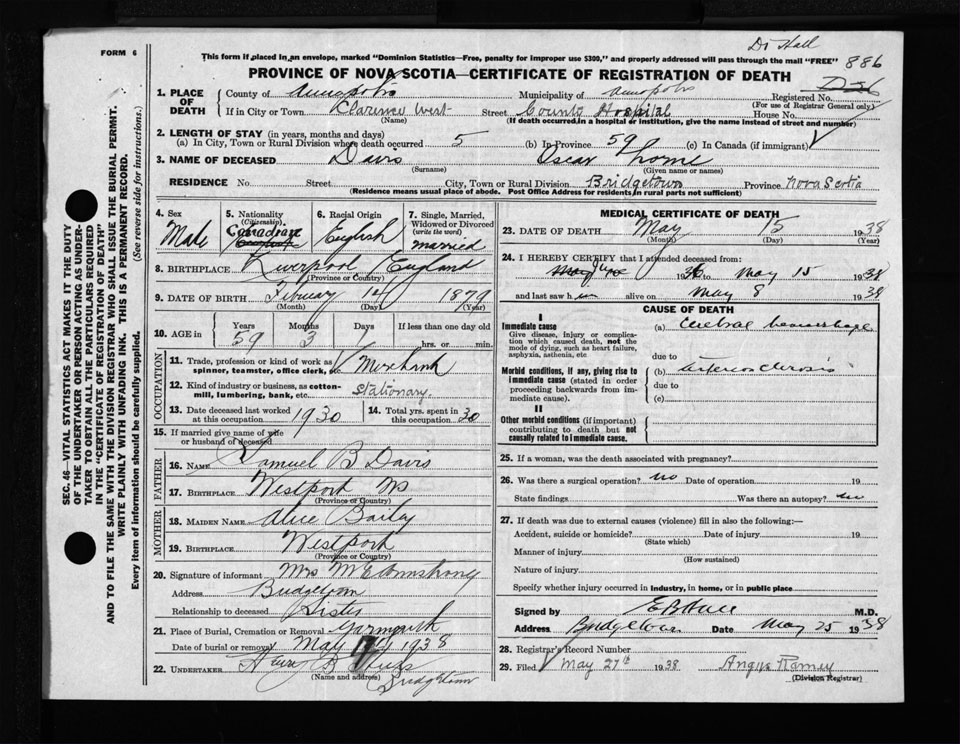 Dr Hall
FORM 6
This form if placed in an envelope, marked "Dominion Statistics—Free, penalty for improper use $300," and properly addressed will pass through the mail "FREE"
886
PROVINCE OF NOVA SCOTIA—CERTIFICATE OF REGISTRATION OF DEATH
1. PLACE OF DEATH
County of Annapolis Municipality of Annapolis Registered No.
(For use of Registrar General only)
If in City or Town Clarence West Street County Hospital House No.
(Name) (If death occurred in a hospital or institution, give the name instead of street and number)
2. LENGTH OF STAY (in years, months and days)
(a) In City, Town or Rural Division where death occurred 5 (b) In Province 59 (c) In Canada (if immigrant)
3. NAME OF DECEASED Davis Oscar
(Surname) (Given name or names)
RESIDENCE No. Street City, Town or Rural Division Bridgetown Province Nova Scotia
(Residence means usual place of abode. Post Office Address for residents in rural parts not sufficient)
4. Sex Male
5. Nationality (Citizenship) Canadian
6. Racial Origin English
7. Single, Married, Widowed or Divorced (write the word) married
8. BIRTHPLACE Liverpool England
(Province or Country)
9. DATE OF BIRTH February 14 1879
(Month) (Day) (Year)
10. AGE in Years Months Days If less than one day old
59 3 1 hrs. or min.
OCCUPATION
11. Trade, profession or kind of work as spinner, teamster, office clerk, etc. Merchant
12. Kind of industry or business, as cotton-mill, lumbering, bank, etc. Stationary
13. Date deceased last worked at this occupation 1930
14. Total yrs. spent in this occupation 30
15. If married give name of wife or husband of deceased
FATHER
16. NAME Samuel B Davis
17. BIRTHPLACE Westport NS
(Province or Country)
MOTHER
18. MAIDEN NAME Alice Baily
19. BIRTHPLACE Westport
(Province or Country)
20. Signature of informant Mrs Armstrong
Address Bridgetown
Relationship to deceased Sister
21. Place of Burial, Cremation or Removal Yarmouth
Date of burial or removal May 17 1938
22. UNDERTAKER B Hicks
(Name and address) Bridgetown
MEDICAL CERTIFICATE OF DEATH
23. DATE OF DEATH May 15 1938
(Month) (Day) (Year)
24. I HEREBY CERTIFY that I attended deceased from:
June 1936 to May 15 1938
and last saw h im alive on May 8 1938
CAUSE OF DEATH
I
Immediate cause
Give disease, injury or complication which caused death, not the mode of dying, such as heart failure, asphyxia, asthenia, etc
(a) Cerebral hemorrhage
due to
Morbid conditions, if any, giving rise to immediate cause (stated in order proceeding backwards from immediate cause).
(b) arteriosclerosis
due to
(c)
II
Other morbid conditions (if important) contributing to death but not causally related to immediate cause.
25. If a woman, was the death associated with pregnancy?
26. Was there a surgical operation? no Date of operation 19
State findings Was there an autopsy? no
27. If death was due to external causes (violence) fill in also the following:—
Accident, suicide or homicide? Date of injury 19
(State which)
Manner of injury
(How sustained)
Nature of injury
Specify whether injury occurred in industry, in home, or in public place
Signed by E B Hall M.D.
Address Bridgetown Date May 25 1938
28. Registrar's Record Number
29. Filed May 27th 1938 Angus Ramey
(Division Registrar)
SEC. 46—VITAL STATISTICS ACT MAKES IT THE DUTY
OF THE UNDERTAKER OR PERSON ACTING AS UNDERTAKER TO OBTAIN ALL THE PARTICULARS REQUIRED
IN THE "CERTIFICATE OF REGISTRATION OF DEATH"
AND TO FILE THE SAME WITH THE DIVISION REGISTRAR WHO SHALL ISSUE THE BURIAL PERMIT.
WRITE PLAINLY WITH UNFADING INK. THIS IS A PERMANENT RECORD.
Every item of information should be carefully supplied. (See reverse side for instructions.)